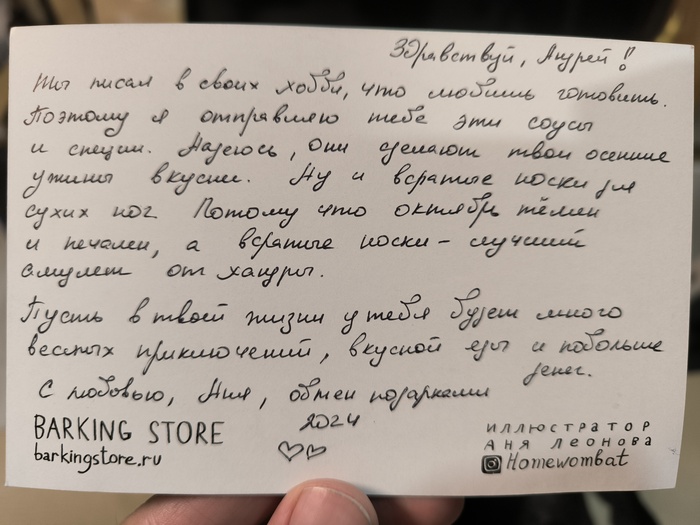 Здравствуй, Андрей!!
Ты писал в своих хобби, что любишь готовить.
Поэтому я отправляю тебе эти соусы
и специи. Надеюсь, они сделают твои осенние
ужины вкуснее. Ну и всратые носки для
сухих ног. Потому что октябрь тёмен
и печален, а всратые носки - лучший
амулет от хандры.
Пусть в твоей жизни у тебя будет много
веселых приключений, вкусной еды и побольше
денег.
С любовью, Аня, обмен подарками
2024
BARKING STORE
barkingstore.ru
ИЛЛЮСТРАТОР
АНЯ ЛЕОНОВА
Homewombat